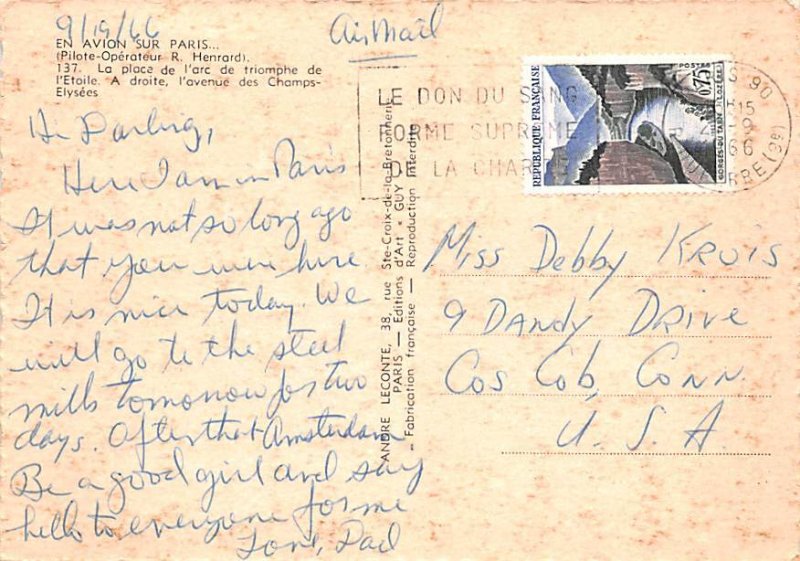 9/19/66
Air Mail
EN AVION SUR PARIS...
(Pilote-Opérateur R. Henrard).
137. La place de l'arc de triomphe de
l'Etoile. A droite, l'avenue des Champs-
Elysées
Hi Darling,
Here I am in Paris
It was not so long ago
that you were here
It is nice today. We
will go to the steel
mills tomorrow for two
days. After that Amsterdam
Be a good girl and say
hello to everyone for me
Love, Dad
ANDRE LECONTE, 38, rue Ste-Croix-de-la-Bretonnerie
PARIS — Editions d'Art « GUY »
Fabrication française — Reproduction Interdite
LE DON DU SANG
FORME SUPREME
DE LA CHARITE
S 90
H15
-9
66
(9e)
REPUBLIQUE FRANÇAISE
POSTES
0,75
GORGES DU TARN (LOZERE)
Miss Debby Kruis
9 Dandy Drive
Cos Cob, Conn.
U. S. A.